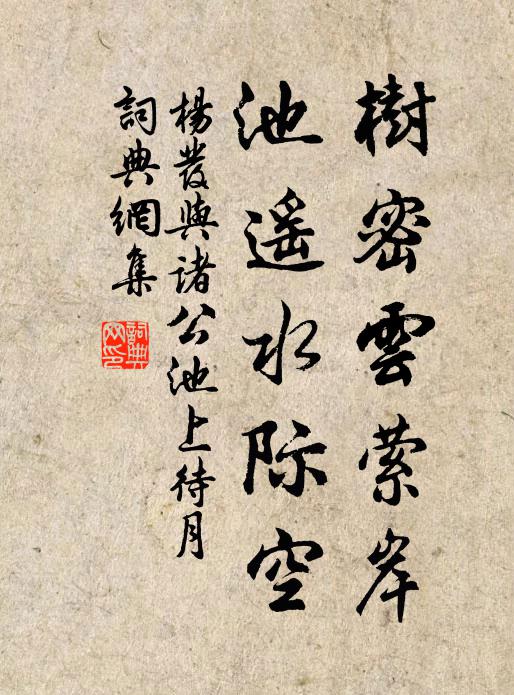 樹密雲萦岸
池遥水际空
楊發與諸公池上待月
詞典網集
詞典网印